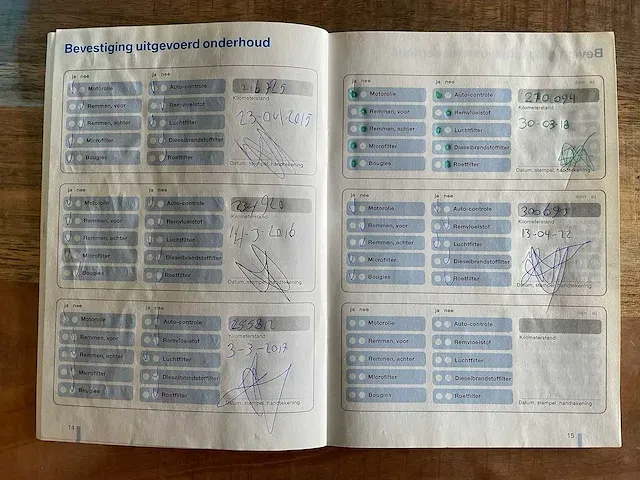 Bevestiging uitgevoerd onderhoud
ja nee ja nee
Motorolie Auto-controle
Remmen, voor Remvloeistof Kilometerstand
Remmen, achter Luchtfilter
Microfilter Dieselbrandstoffilter
Bougies Roetfilter Datum, stempel, handtekening
ja nee ja nee
Motorolie Auto-controle
Remmen, voor Remvloeistof Kilometerstand
Remmen, achter Luchtfilter
Microfilter Dieselbrandstoffilter
Bougies Roetfilter Datum, stempel, handtekening
ja nee ja nee
Motorolie Auto-controle
Remmen, voor Remvloeistof Kilometerstand
Remmen, achter Luchtfilter 3-3-2017
Microfilter Dieselbrandstoffilter
Bougies Roetfilter Datum, stempel, handtekening
14
ja nee ja nee
Motorolie Auto-controle 270.094
Remmen, voor Remvloeistof Kilometerstand
Remmen, achter Luchtfilter 30-03-18
Microfilter Dieselbrandstoffilter
Bougies Roetfilter Datum, stempel, handtekening
ja nee ja nee
Motorolie Auto-controle
Remmen, voor Remvloeistof Kilometerstand
Remmen, achter Luchtfilter 13-04-22
Microfilter Dieselbrandstoffilter
Bougies Roetfilter Datum, stempel, handtekening
ja nee ja nee
Motorolie Auto-controle
Remmen, voor Remvloeistof Kilometerstand
Remmen, achter Luchtfilter
Microfilter Dieselbrandstoffilter
Bougies Roetfilter Datum, stempel, handtekening
15